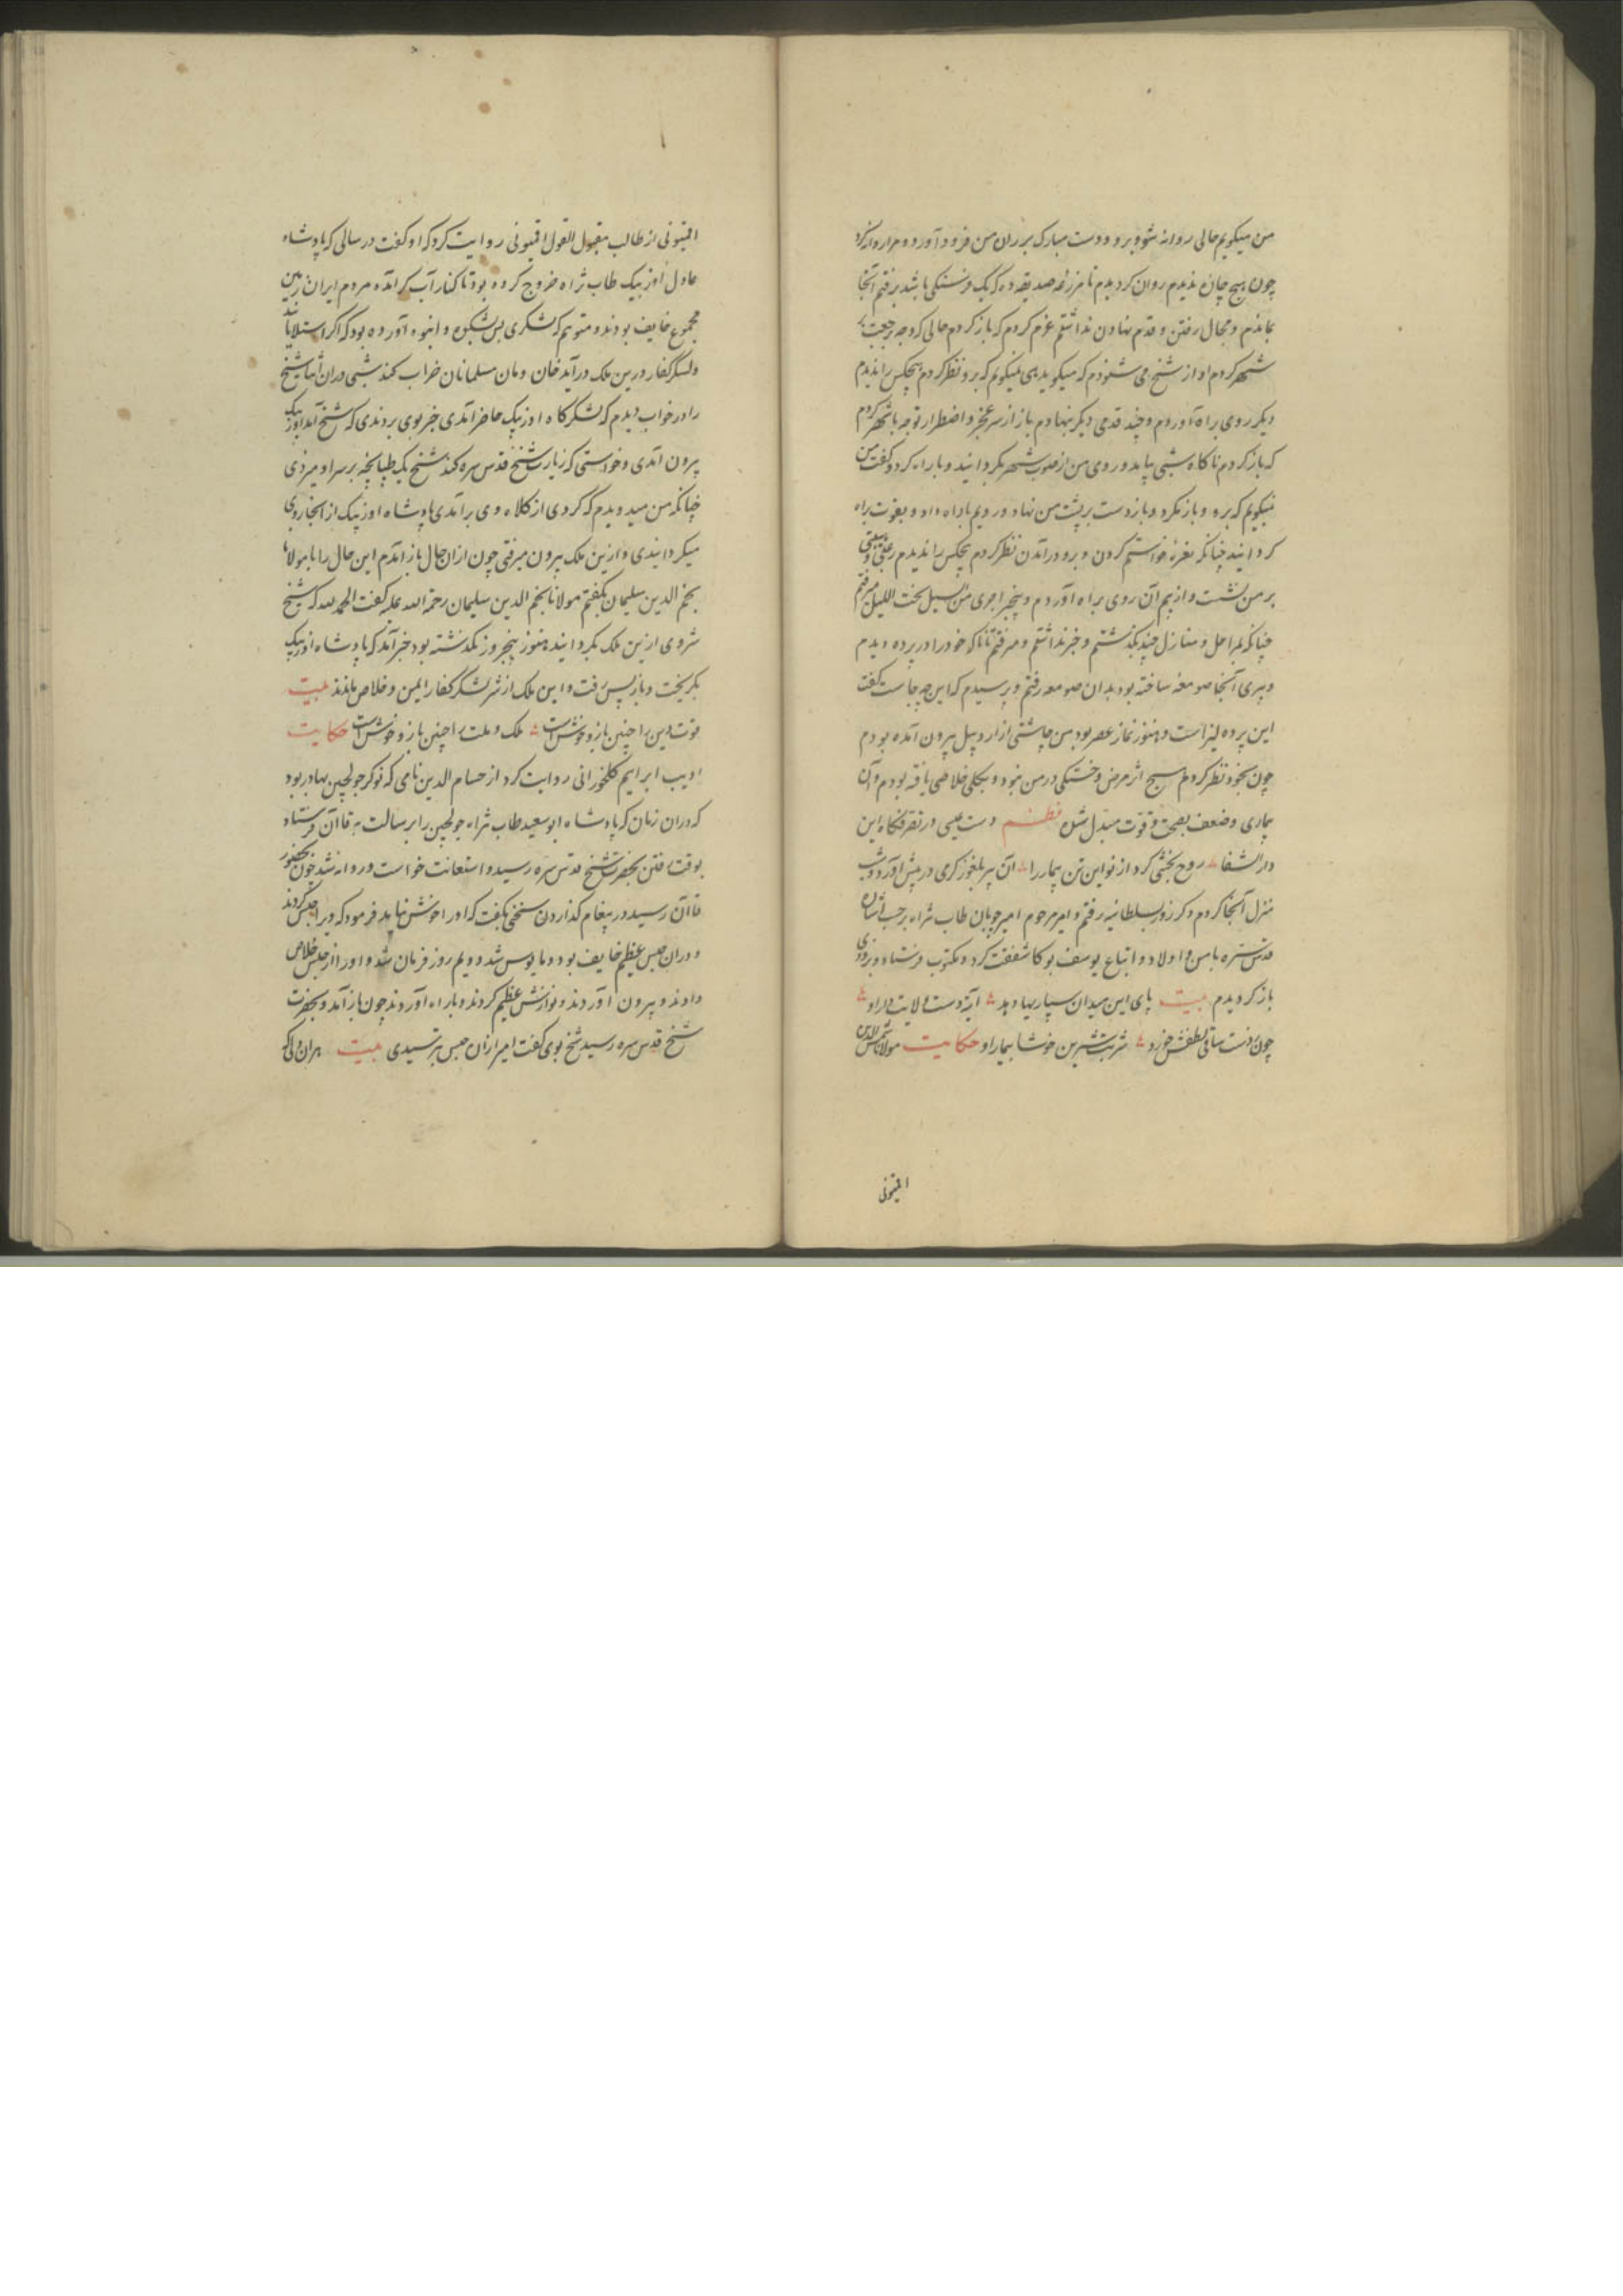 من میکویم حالی روانه شو و برو و دست مبارک بر ران من فرود آورد و مرا روانه کرد
چون هیچ جان ندیدم روان کردیدم تا مزرعه صدیقه ده که یک فرسنکی باشد برفتم آنجا
بماندم و مجال رفتن و قدم نهادن نداشتم عزم کردم که بازکردم حالی که وجه رجعت
شهر کردم آواز شیخ می شنودم که میکوید هی میکویم که برو نظر کردم هیچکس را ندیدم
دیکر روی براه آوردم و چند قدمی دیکر بنهادم باز از سر عجز و اضطرار توجه با شهر کردم
که بازکردم ناکاه شیخ بیامد و روی من از صوب شهر بکردانید و باراه کرد و کفت من
میکویم که برو و باز مکرد و باز دست بر پشت من نهاد و رویم باراه داد و بقوت براه
کردانید چنانکه نعره خواستم کردن و برو در آمدن نظر کردم هیچکس را ندیدم رعبی و هیبتی
بر من نشست و از بیم آن روی براه آوردم و بیخبر اجری من السیل تحت اللیل میرفتم
چنانکه بمراحل و منازل چند بکذشتم و خبر نداشتم و میرفتم تا ناکه خود را در پرده دیدم
و پیری آنجا صومعه ساخته بود بدان صومعه رفتم و پرسیدم که این چه جاست کفت
این پرده لیز است و هنوز نماز عصر بود من چاشتی از اردبیل بیرون آمده بودم
چون بخود نظر کردم هیچ اثر مرض و خستکی در من نبود و بکلی خلاصی یافته بودم و آن
بیماری و ضعف بصحت و قوت مبدل شده نظم دست عیسی در تصرفکاه این
دار الشفا روح بخشی کرد از نو این تن بیمار را آن پیر بلغور کری در پیش آورد و شب
منزل آنجا کردم و دکر روز بسلطانیه رفتم و امیر مرحوم امیر چوبان طاب ثراه برحسب اشاره
قدس سره با من و اولاد و اتباع یوسف بوکا شفقت کرد و مکتوب فرستاد و بزودی
بازکردیدم بیت پای این میدان سپار بیا و بد آیه دست ولایت دار او
چون ز دست ساقی لطفش خورد شربت شیرین خوشا بیمار او حکایت مولانا شمس الدین
اقمیونی
اقمیونی از طالب مقبول القول اقمیونی روایت کرد که او کفت در سالی که پادشاه
عادل اوزبیک طاب ثراه خروج کرده بود تا کنار آب کر آمده مردم ایران زمین
مجموع خایف بودند و متوهم که لشکری بس بشکوه و انبوه آورده بود که اکر استیلا یابند
ولشکر کفار درین ملک درآید خان و مان مسلمانان خراب کند شبی در آن اثنا شیخ
را در خواب دیدم که لشکرکاه اوزبیک حاضر آمدی خبر بوی بردندی که شیخ آمد اوزبیک
بیرون آمدی و خواستی که زیارت شیخ قدس سره کند شیخ یک طپانچه بر سر او میزدی
چنانکه من میدیدم که کردی از کلاه وی برآمدی پادشاه اوزبیک از آنجا روی
میکردانیدی و ازین ملک بیرون میرفتی چون از آن حال باز آمدم این حال را با مولانا
نجم الدین سلیمان بکفتم مولانا نجم الدین سلیمان رحمة الله علیه کفت الحمد لله که شیخ
شر وی ازین ملک بکردانید هنوز پنج روز نکذشته بود خبر آمد که پادشاه اوزبیک
بکریخت و باز پس رفت و این ملک از شر لشکر کفار ایمن و خلاص ماندند بیت
قوت دین را چنین بازو خوش است ملک و ملت را چنین بازو خوش است حکایت
ادیب ابراهیم کلخورانی روایت کرد از حسام الدین نامی که نوکر جولچین بهادر بود
که در آن زمان که پادشاه ابوسعید طاب ثراه جولچین را برسالت به قاآن فرستاد
بوقت رفتن بحضرت شیخ قدس سره رسید و استعانت خواست و روانه شد چون بحضور
قاآن رسید در پیغام کذاردن سخنی بکفت که او را خوش نیامد فرمود که ویرا حبس کردند
و در آن حبس عظیم خایف بود و مایوس شد دویم روز فرمان شد و او را از حبس خلاص
دادند و بیرون آوردند و نوازش عظیم کردند و باراه آوردند چون باز آمد و بحضرت
شیخ قدس سره رسید شیخ بوی کفت امیر از آن حبس بترسیدی بیت هر آن دلی که